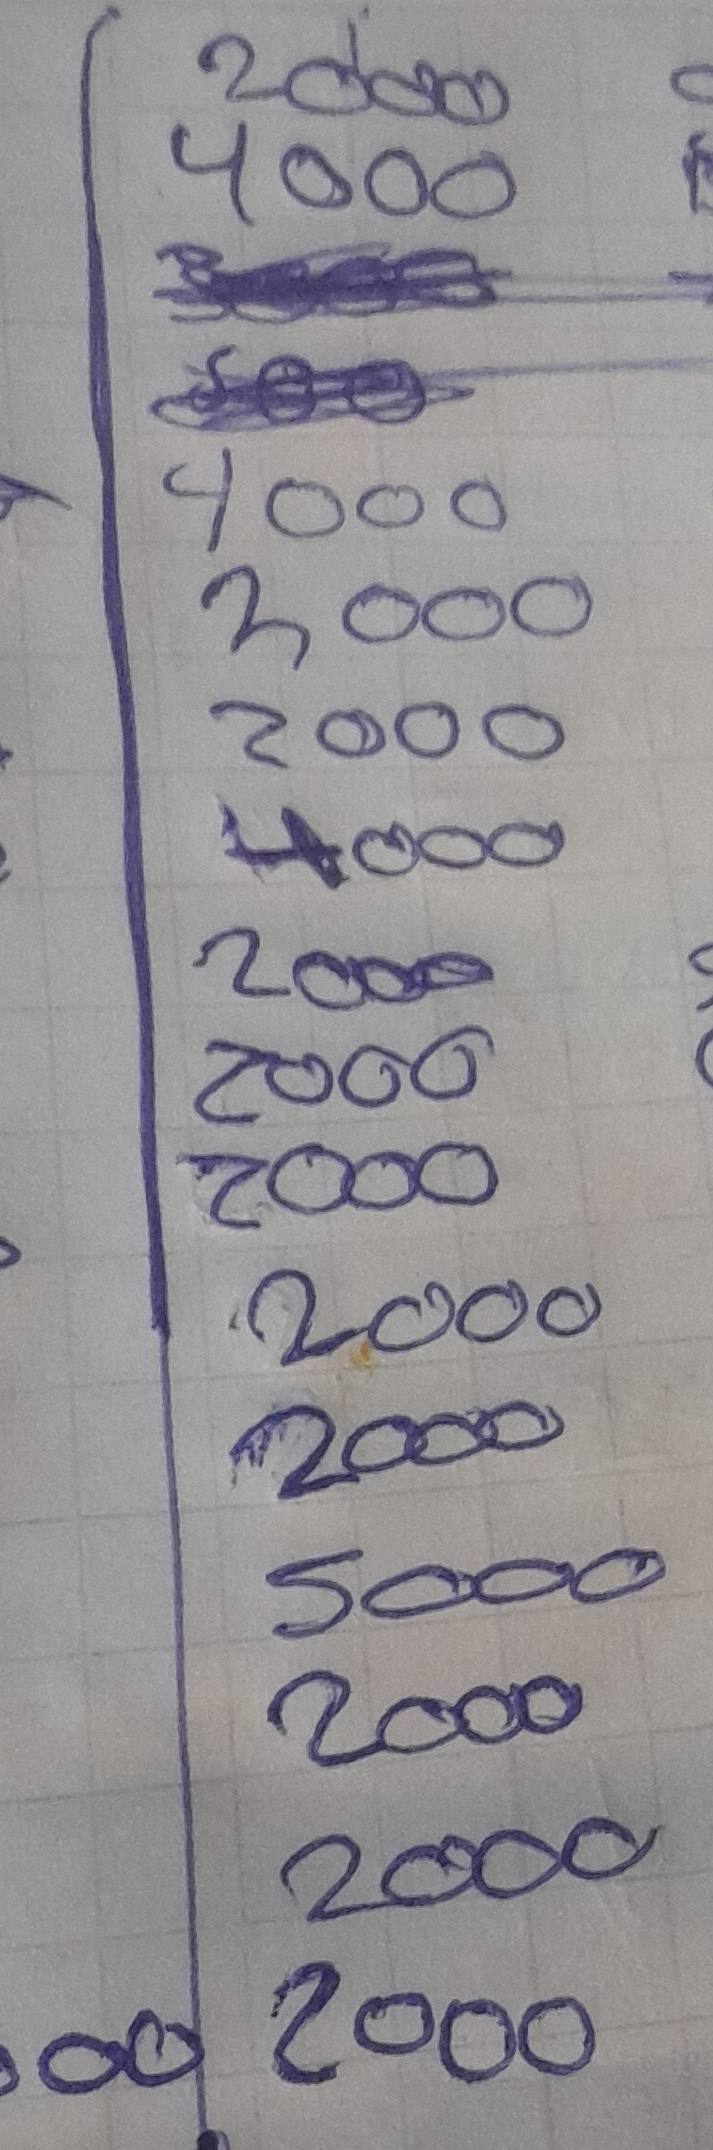 2000
4000
4000
2000
2000
4000
2000
2000
2000
2000
2000
5000
2000
2000
00 2000